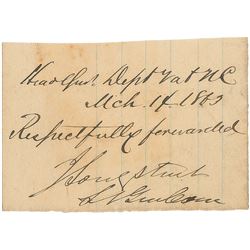 Head Qrs Dept Va & NC
Mch. 14 1863
Respectfully forwarded
J Longstreet
Lt Gen Com